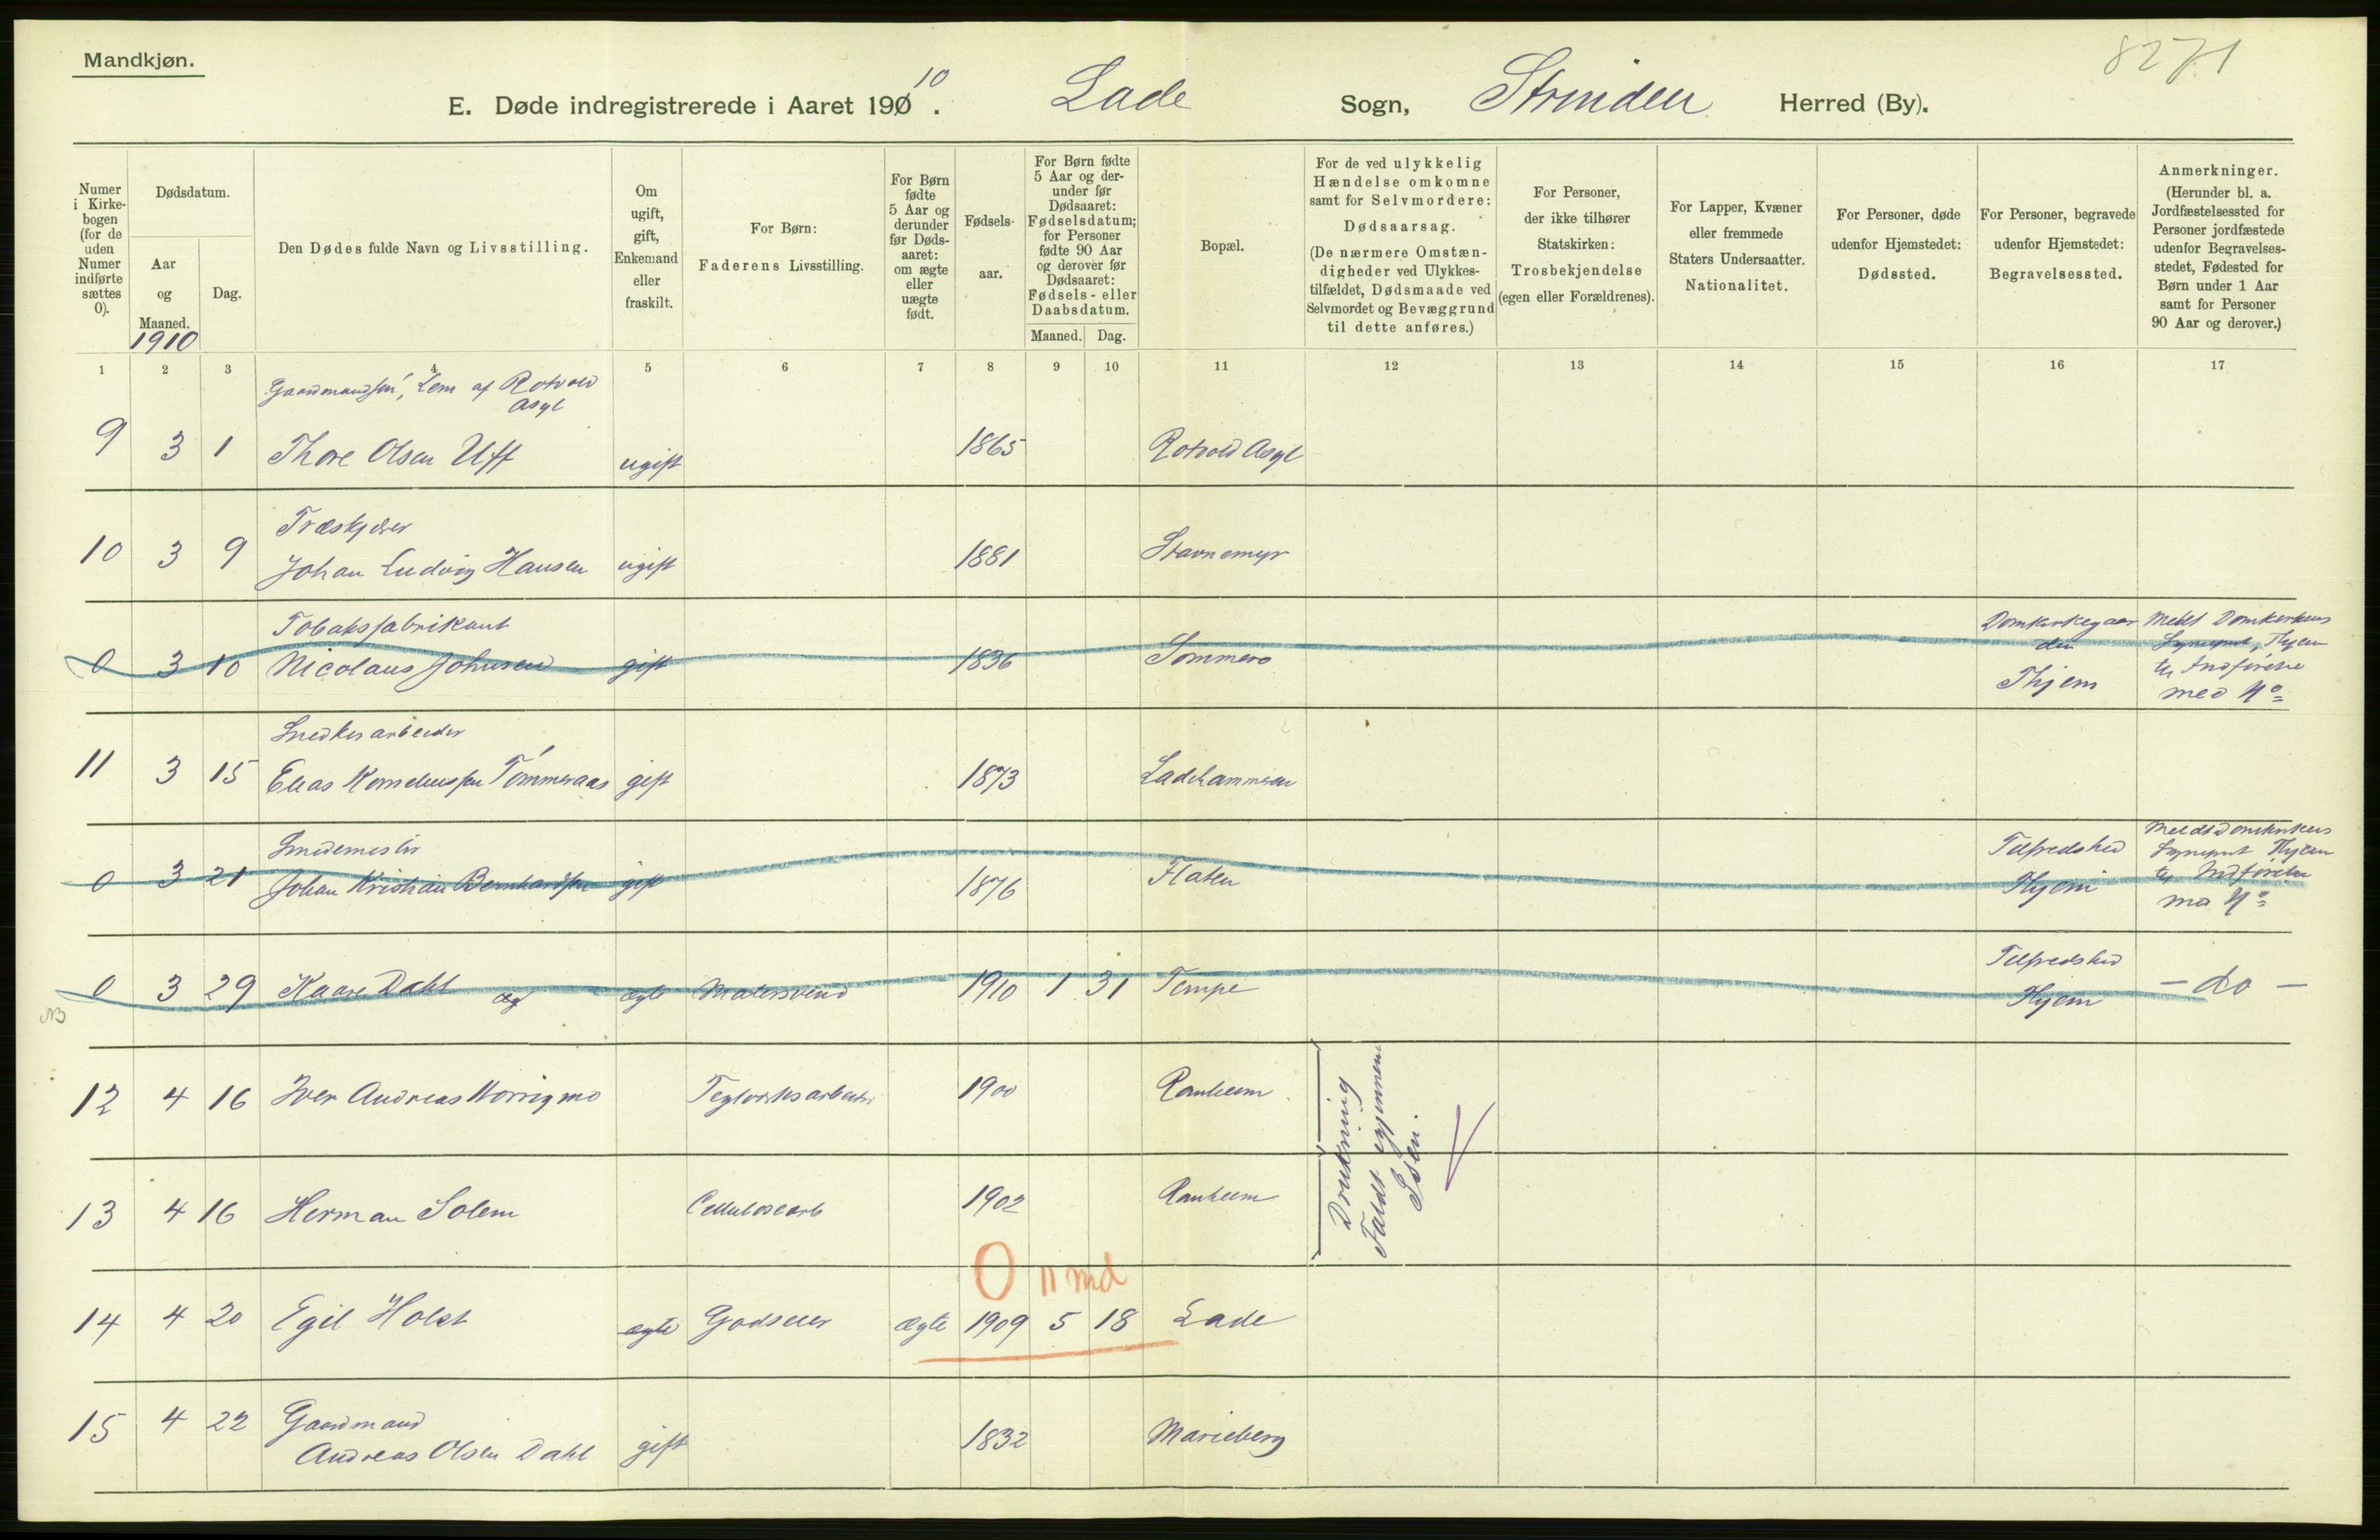 Mandkjøn.
8271
E. Døde indregistrerede i Aaret 190 10. Lade Sogn, Strinden Herred (By).
Numer i Kirkebogen (for de uden Numer indførte sættes 0).
Dødsdatum.
Aar og Maaned.
1910
Dag.
Den Dødes fulde Navn og Livsstilling.
Om ugift, gift, Enkemand eller fraskilt.
For Børn:
Faderens Livsstilling.
For Børn fødte 5 Aar og derunder før Dødsaaret: om ægte eller uægte født.
Fødselsaar.
For Børn fødte 5 Aar og derunder før Dødsaaret: Fødselsdatum; for Personer fødte 90 Aar og derover før Dødsaaret: Fødsels- eller Daabsdatum.
Maaned. Dag.
Bopæl.
For de ved ulykkelig Hændelse omkomne samt for Selvmordere:
Dødsaarsag.
(De nærmere Omstændigheder ved Ulykkestilfældet, Dødsmaade ved Selvmordet og Bevæggrund til dette anføres.)
For Personer, der ikke tilhører Statskirken:
Trosbekjendelse (egen eller Forældrenes).
For Lapper, Kvæner eller fremmede Staters Undersaatter.
Nationalitet.
For Personer, døde udenfor Hjemstedet:
Dødssted.
For Personer, begravede udenfor Hjemstedet:
Begravelsessted.
Anmerkninger.
(Herunder bl. a. Jordfæstelsessted for Personer jordfæstede udenfor Begravelsesstedet, Fødested for Børn under 1 Aar samt for Personer 90 Aar og derover.)
1 2 3 4 5 6 7 8 9 10 11 12 13 14 15 16 17
Lem af Rotvold
Asyl
9 3 1 Thore Olsen Uft ugift 1865 Rotvold Asyl
Træskjærer
10 3 9 Johan Ludvig Hansen ugift 1881 Stavnemyr
Tobaksfabrikant
0 3 10 Nicolaus Johnsen gift 1836 Sommero
Meldt Domkirkens
til Indførelse
med No
Snedkerarbeider
11 3 15 Elias Korneliussen Tømmeraas gift 1873 Ladehammeren
Smedemester
0 3 21 Johan Kristian Bernhardsen gift 1876 Flaten Tilfredshed
Meldt Domkirkens
til Indførelse
No
0 3 29 Kaare Dahl æg ægte Malersvend 1910 1 31 Tempe Tilfredshed
- do -
NB
12 4 16 Iver Andreas Teglverksarbeider 1900 Ranheim
13 4 16 Herman Solem Cellulosearb 1902 Ranheim
Drukning
Faldt igjennem
Isen.
0 11 md
14 4 20 Egil Holst ægte Godseier ægte 1909 5 18 Lade
15 4 22 Gaardmand
Andreas Olsen Dahl gift 1832 Marieberg